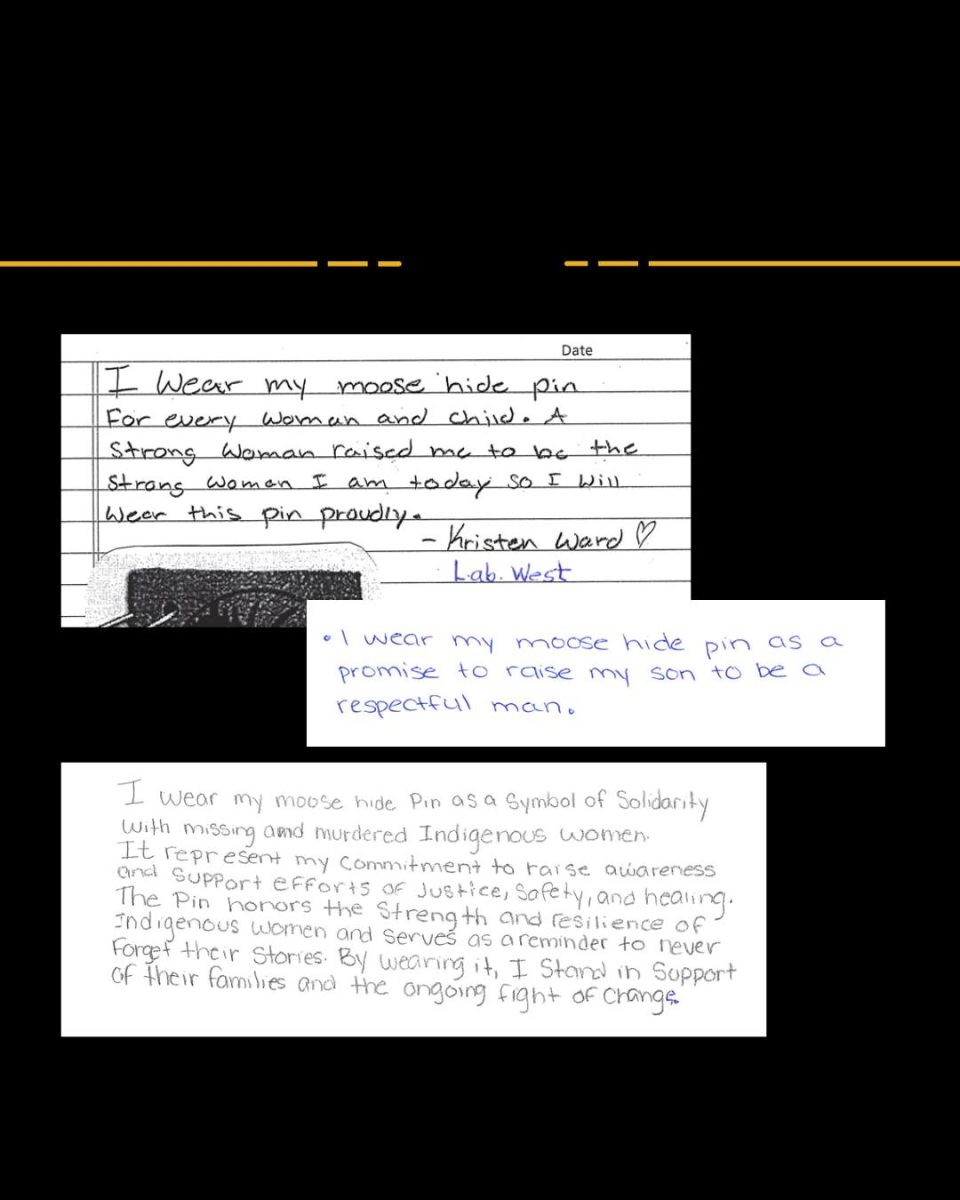 Date
I Wear my moose hide pin
For every woman and child. A
Strong Woman raised me to be the
Strong Woman I am today so I Will
Wear this pin proudly.
- Kristen Ward ♡
Lab. West
• I wear my moose hide pin as a
promise to raise my son to be a
respectful man.
I wear my moose hide Pin as a Symbol of Solidarity
With missing and murdered Indigenous women.
It represent my Commitment to raise awareness
and Support efforts of Justice, Safety, and healing.
The Pin honors the Strength and resilience of
Indigenous women and Serves as a reminder to never
Forget their Stories. By wearing it, I Stand in Support
of their families and the ongoing fight of Change.